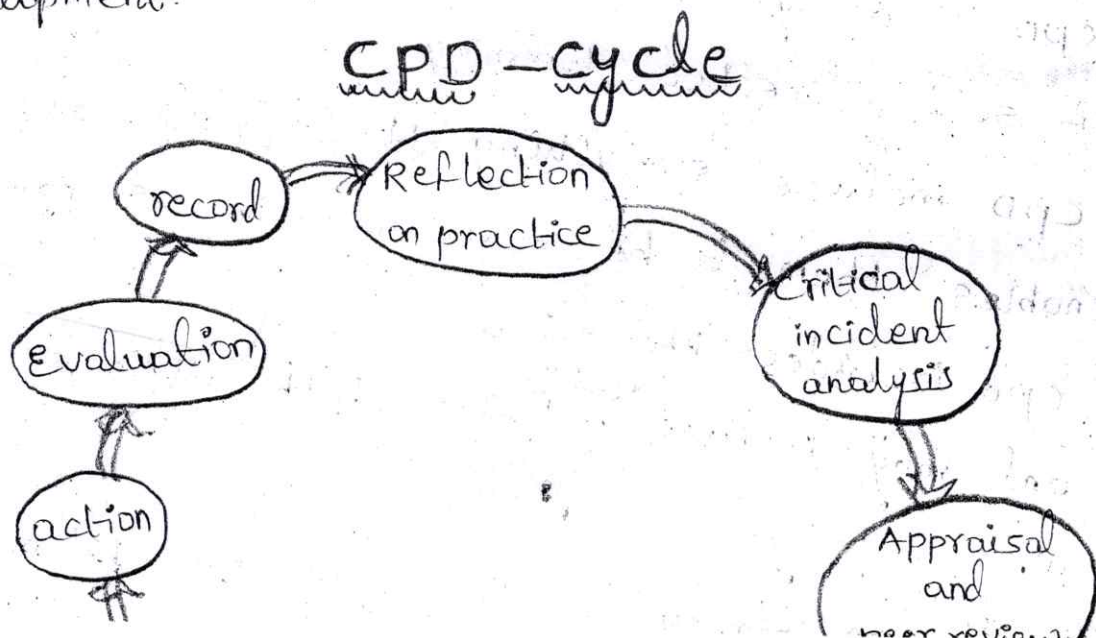 CPD - Cycle
record
Reflection
on practice
Critical
incident
analysis
Evaluation
action
Appraisal
and
peer review